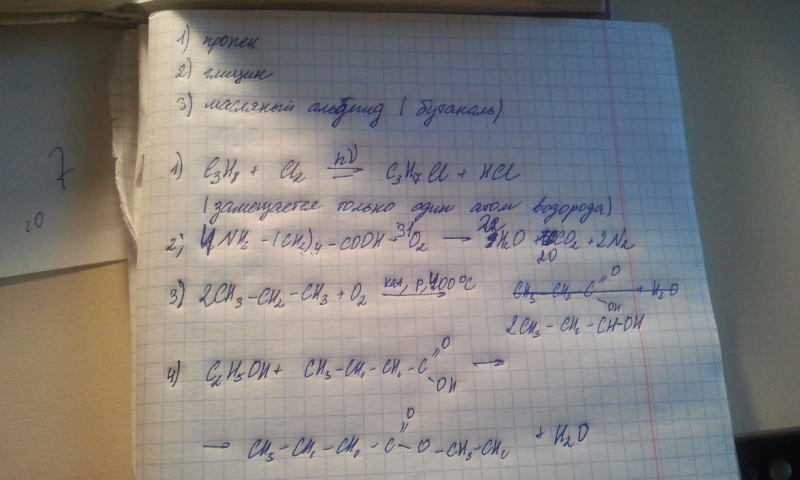 1) пропен
2) глицин
3) масляный альдегид (бутаналь)
1) C₃H₈ + Cl₂ hν ⇌ C₃H₇Cl + HCl
(замещается только один атом водорода)
2) 4NH₂-(CH₂)₄-COOH + 31O₂ → 22H₂O + 20CO₂ + 2N₂
3) 2CH₃-CH₂-CH₃ + O₂ кат, p, 400°C → CH₃-CH₂-C(=O)OH + H₂O
2CH₃-CH₂-CH-OH
4) C₂H₅OH + CH₃-CH₂-CH₂-C(=O)OH →
→ CH₃-CH₂-CH₂-C(=O)-O-CH₃-CH₂ + H₂O
7
20